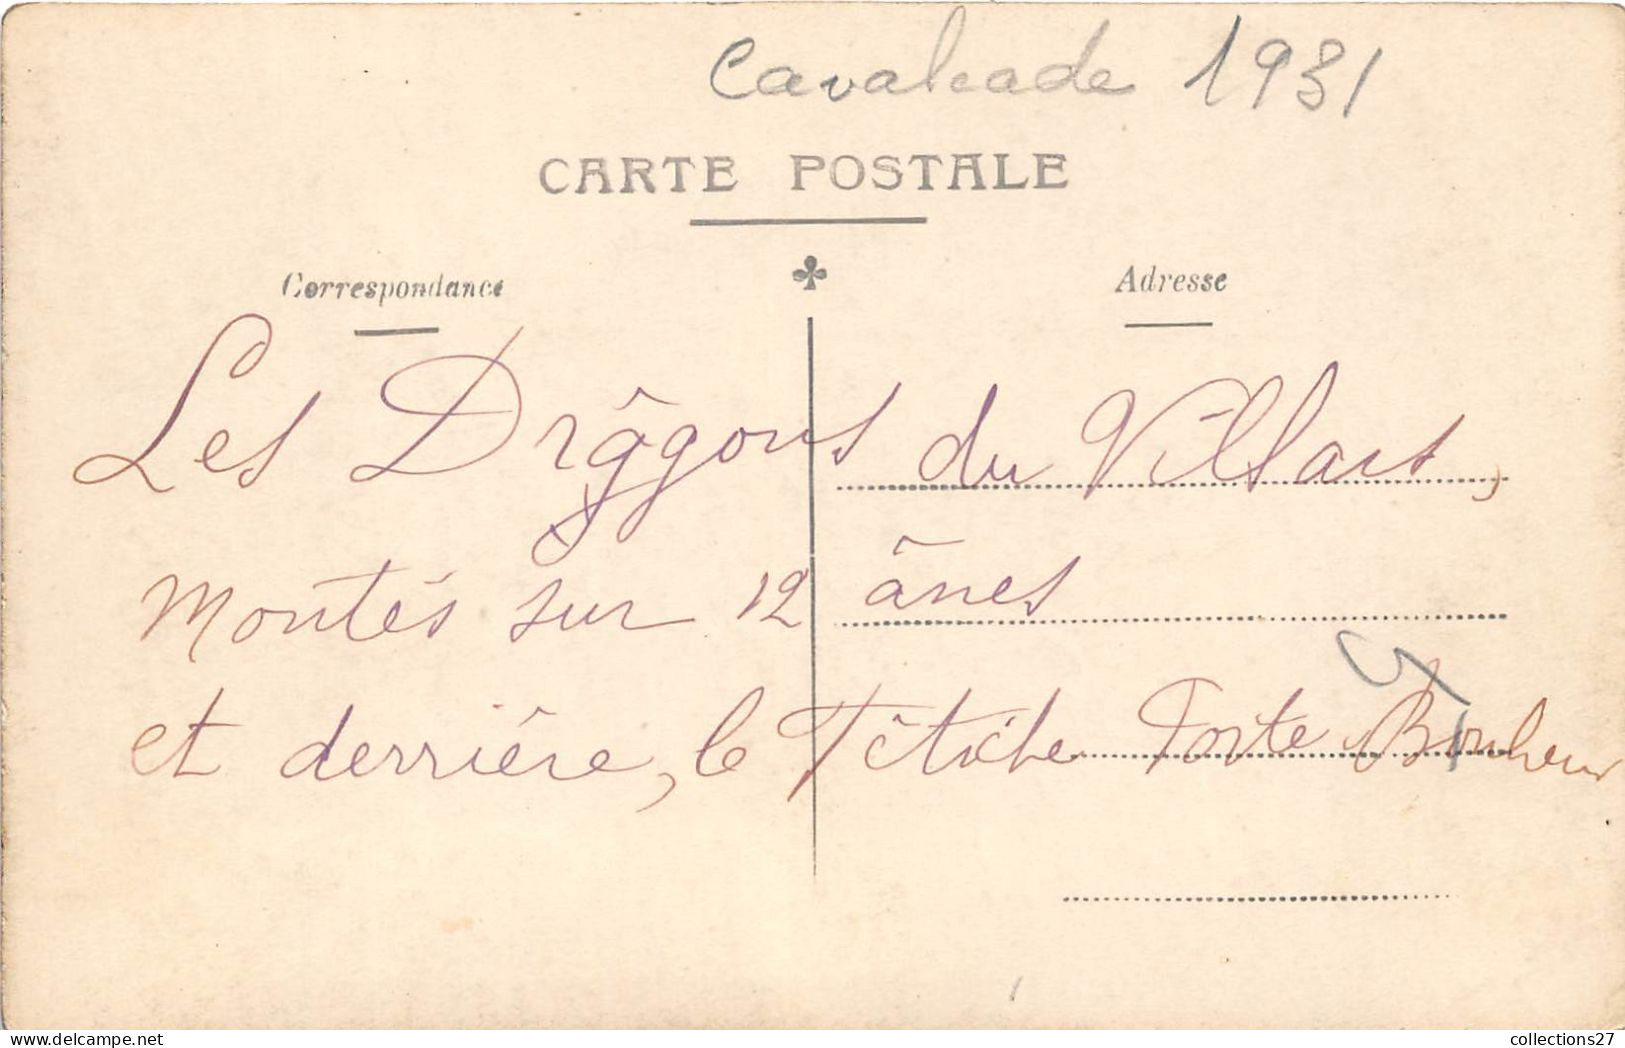 Cavalcade 1931
CARTE POSTALE
Correspondance
Adresse
Les Drâgons du Villars,
Montés sur 12 ânes
et derrière, le Fétiche Porte Bonheur
collections27